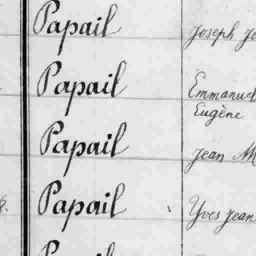 Papail Joseph
Papail Emmanuel
Eugène
Papail Jean
Papail Yves Jean